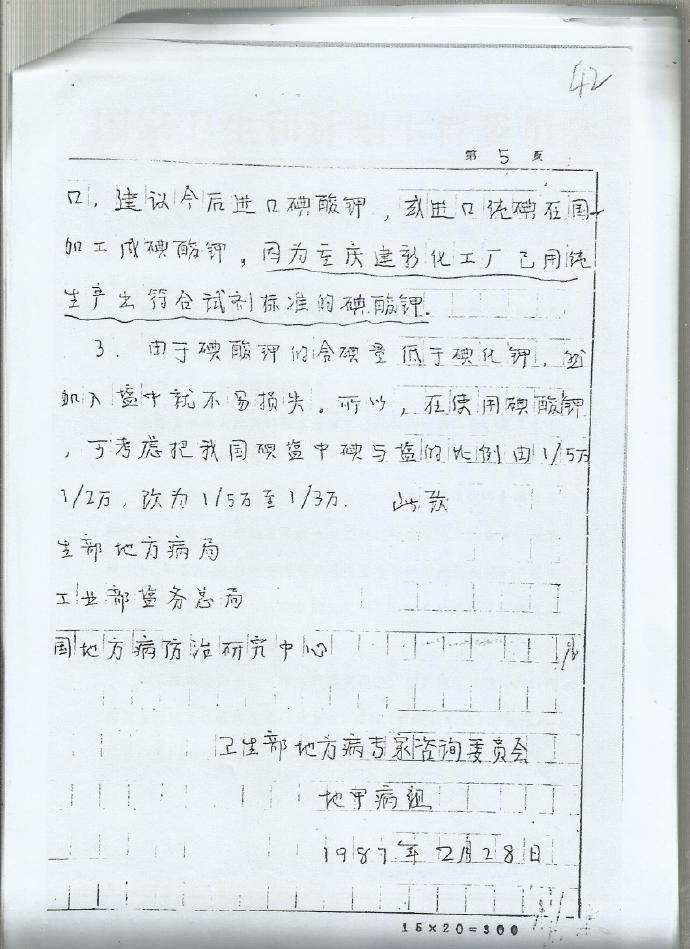 42
第 5 页
口，建议今后进口碘酸钾，或进口纯碘在国
加工成碘酸钾。因为重庆建彭化工厂已用纯
生产出符合试剂标准的碘酸钾.
3. 由于碘酸钾的含碘量低于碘化钾，
加入盐中就不易损失。所以，在使用碘酸钾
，可考虑把我国碘盐中碘与盐的比例由1/5万
1/2万，改为1/5万至1/3万. 此致
生部地方病局
工业部盐务总局
国地方病防治研究中心
卫生部地方病专家咨询委员会
地甲病组
1987年2月28日
15×20=300